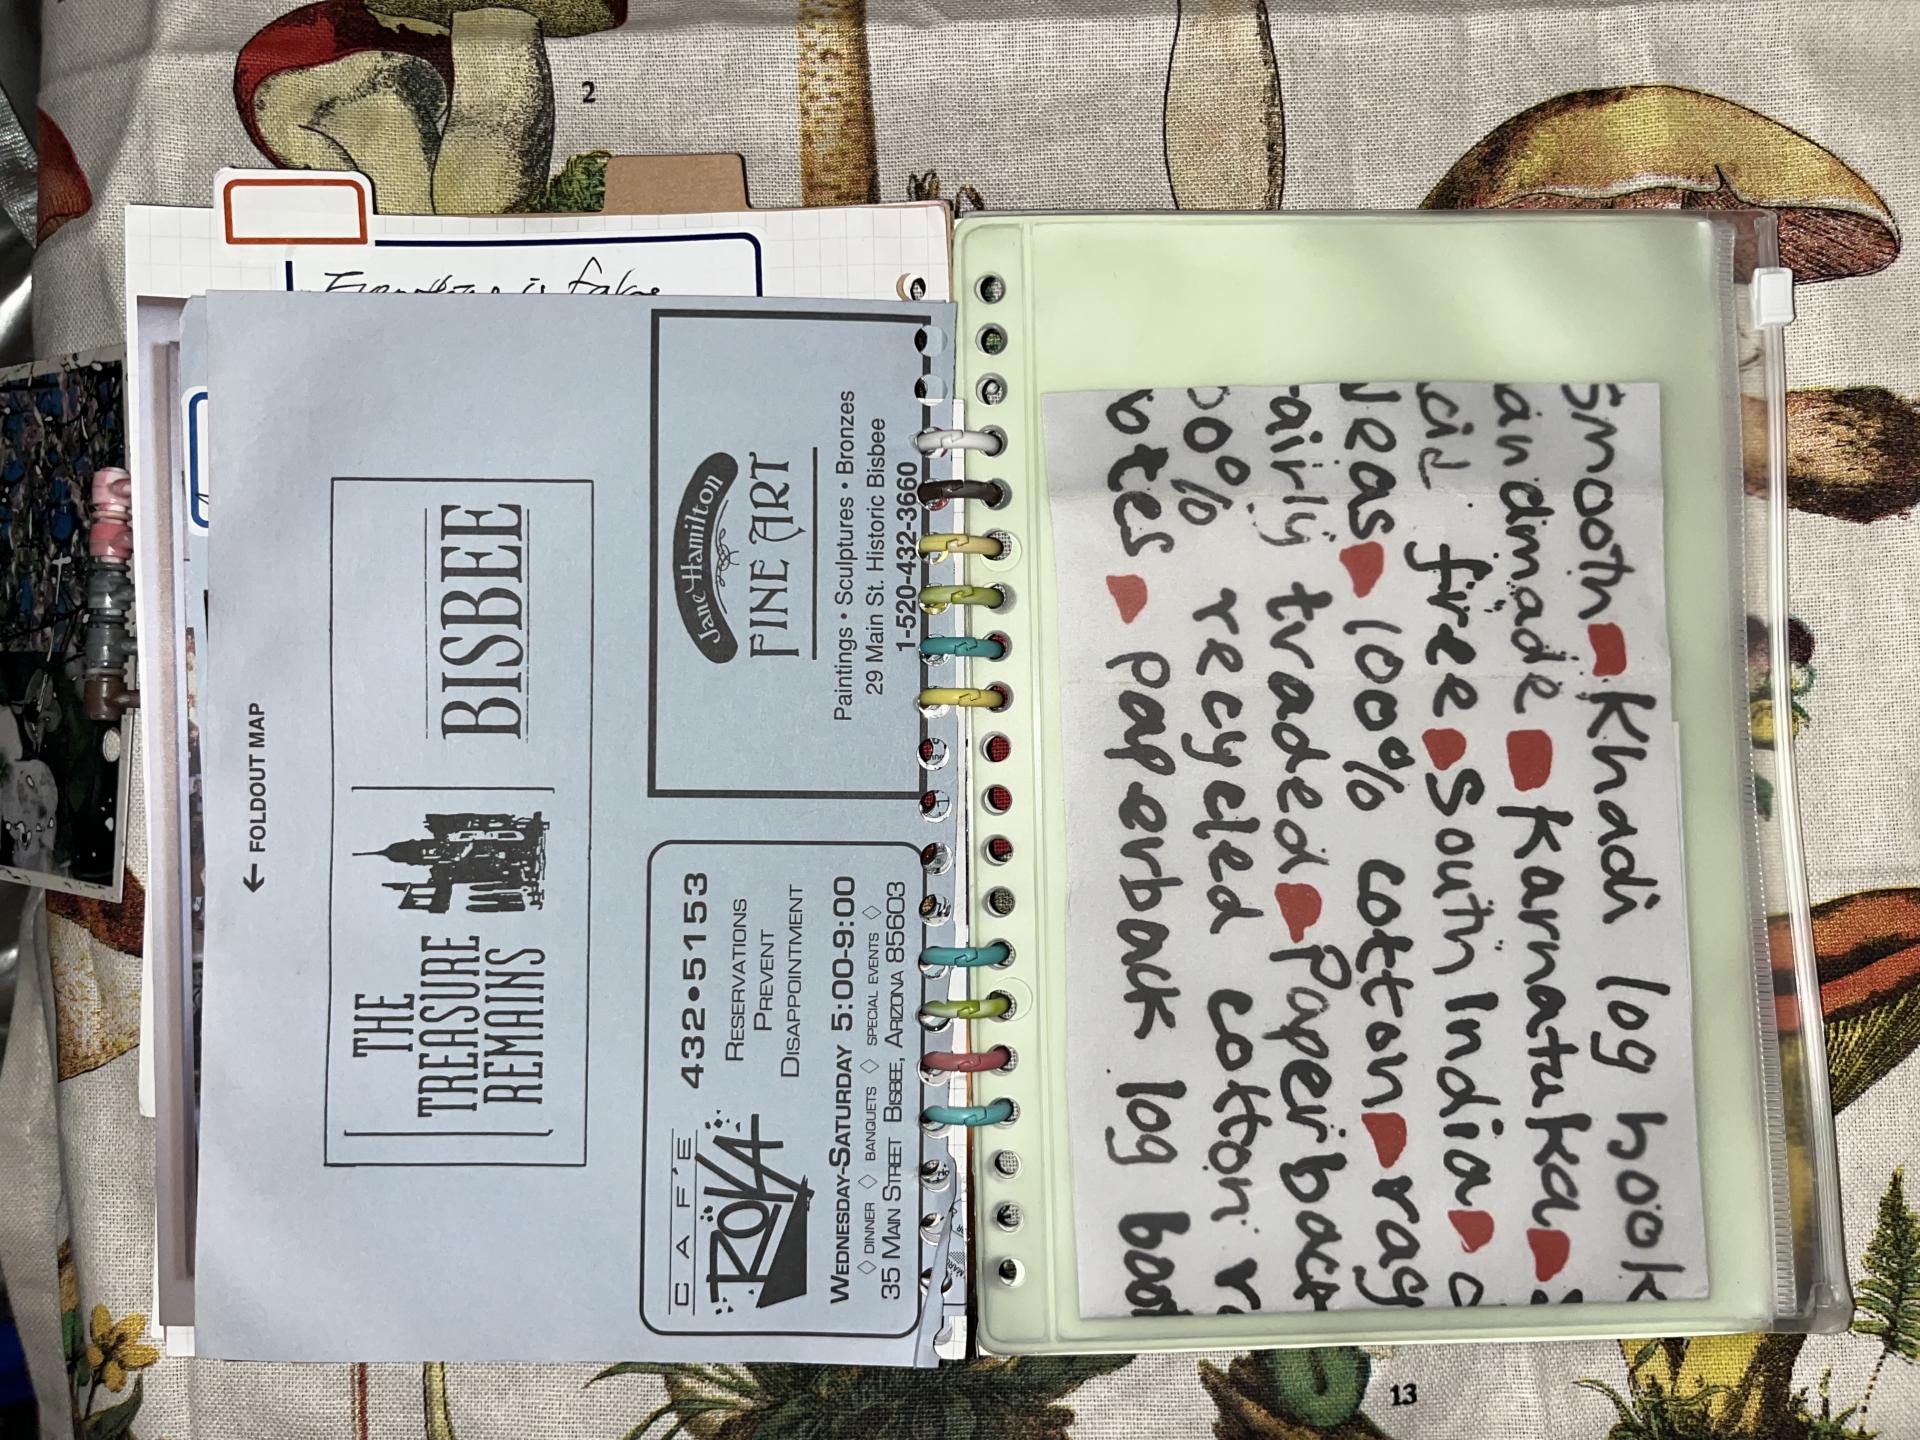 2
← FOLDOUT MAP
THE
TREASURE
REMAINS
BISBEE
CAF'E
ROKA
432•5153
RESERVATIONS
PREVENT
DISAPPOINTMENT
WEDNESDAY-SATURDAY 5:00-9:00
◇ DINNER ◇ BANQUETS ◇ SPECIAL EVENTS ◇
35 MAIN STREET BISBEE, ARIZONA 85603
Jane Hamilton
FINE ART
Paintings • Sculptures • Bronzes
29 Main St. Historic Bisbee
1-520-432-3660
Smooth Khadi log book
andmade Karnataka
cid free South Indian
deas 100% cotton rag
airly traded Paperback
00% recycled cotton
otes paperback log boo
13